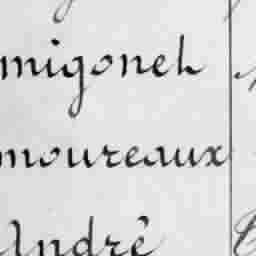 migoneh
moureaux
André